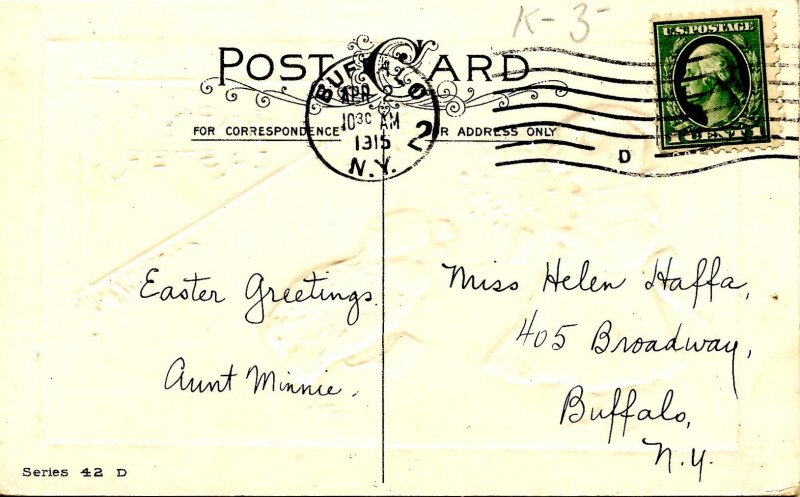 K-3
U.S. POSTAGE
POST CARD
BUFFALO
APR 2
10 30 AM
1915
N.Y.
2
D
FOR CORRESPONDENCE
R ADDRESS ONLY
Easter Greetings.
Aunt Minnie.
Miss Helen Haffa,
405 Broadway,
Buffalo,
N.Y.
Series 42 D